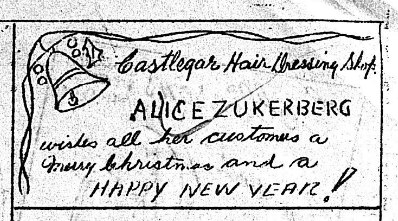 Castlegar Hair Dressing Shop.
ALICE ZUKERBERG
wishes all her customers a
Merry Christmas and a
HAPPY NEW YEAR!